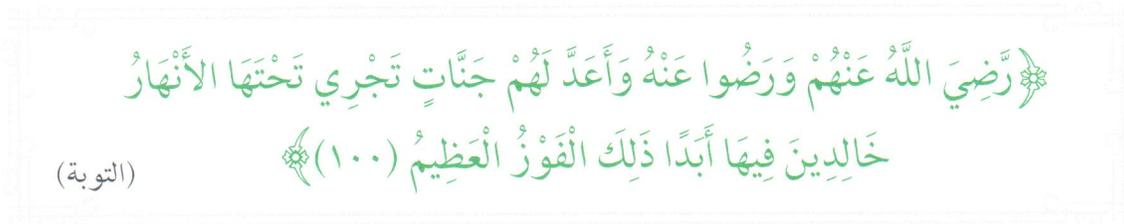 ﴿رَّضِيَ اللَّهُ عَنْهُمْ وَرَضُوا عَنْهُ وَأَعَدَّ لَهُمْ جَنَّاتٍ تَجْرِي تَحْتَهَا الأَنْهَارُ
خَالِدِينَ فِيهَا أَبَدًا ذَلِكَ الْفَوْزُ الْعَظِيمُ (١٠٠)﴾
(التوبة)